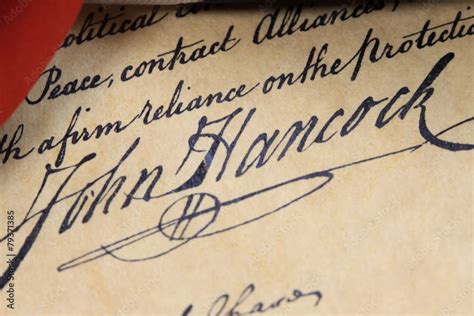 olitical
Peace, contract Alliances,
h a firm reliance on the protectio
John Hancock
Adobe Stock | #79371385